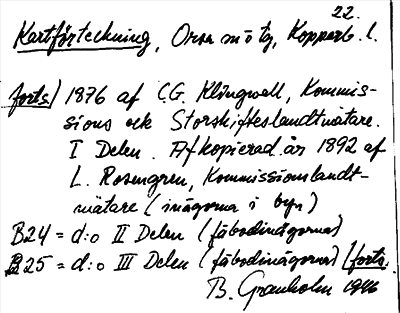 22.
Kartförteckning, Orsa m ö tg, Kopparb. l.
forts/ 1876 af C.G. Klingwall, Kommis-
sions ock Storskifteslandtmätare.
I Delen. Afkopierad år 1892 af
L. Rosengren, Kommissionslandt-
mätare (inägorna i byn)
B24 = d:o II Delen (fäbodinägorna)
B25 = d:o III Delen (fäbodinägorna) /forts.
B. Granholm 1946